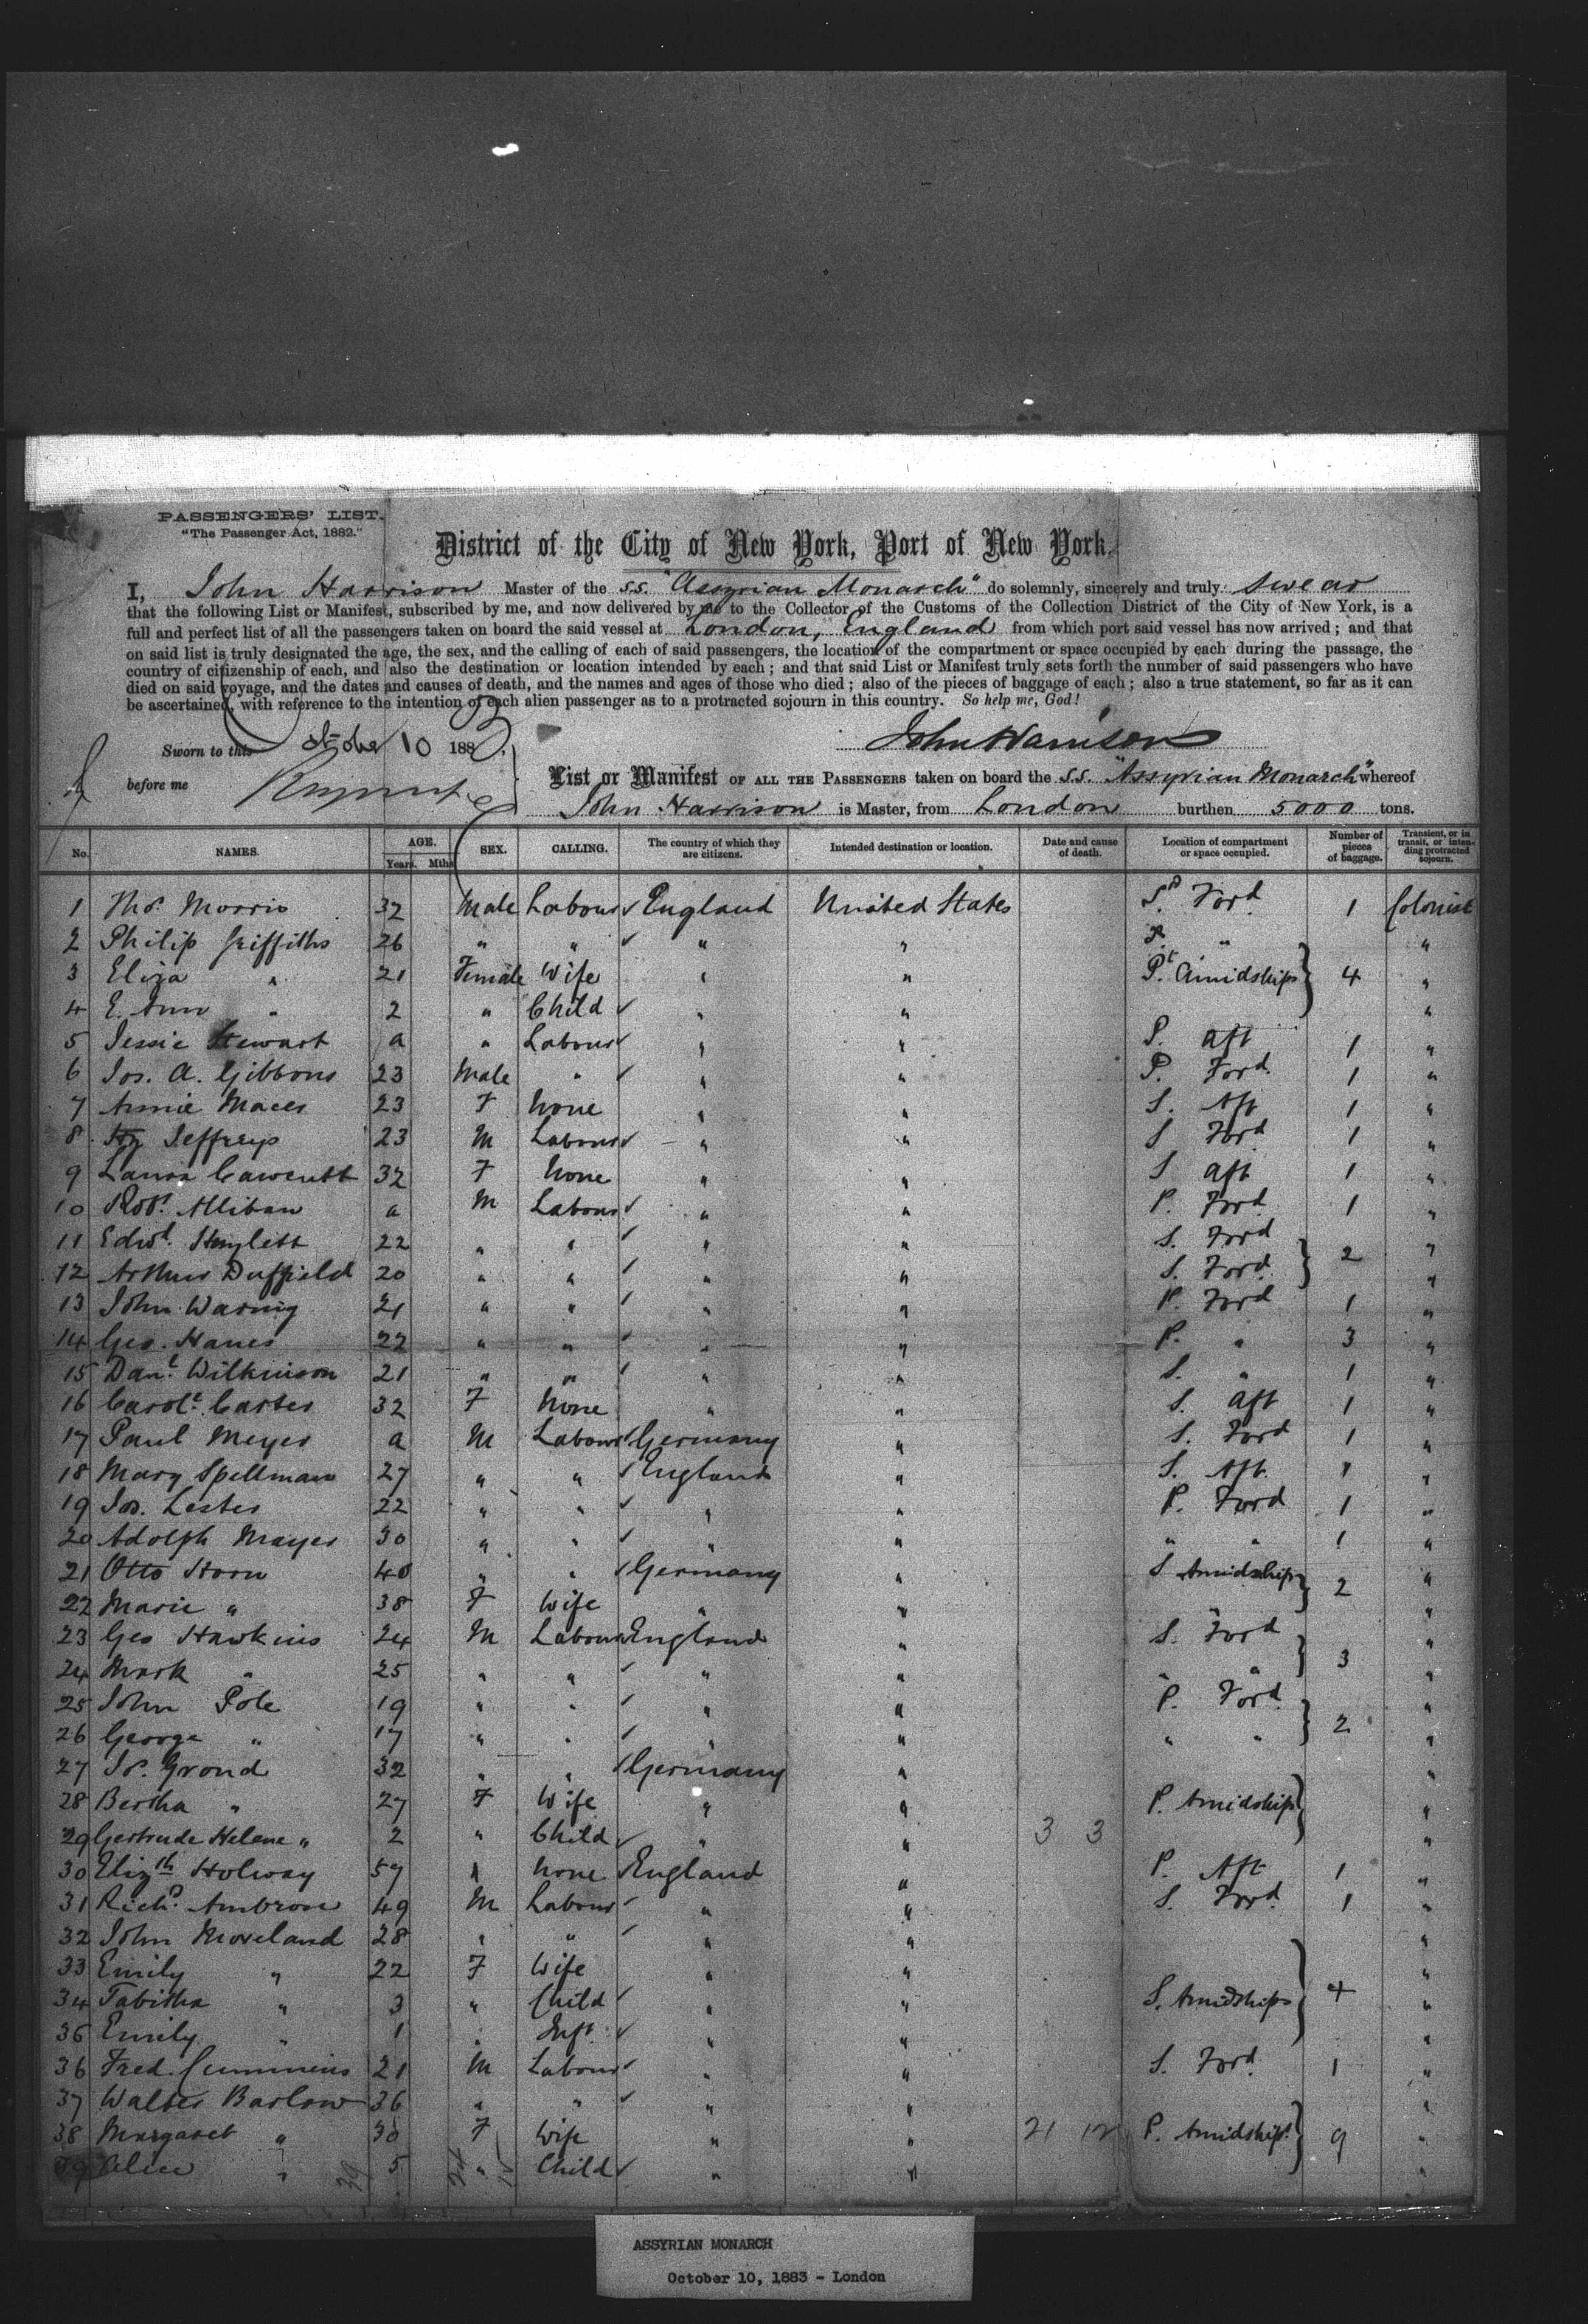 PASSENGERS' LIST.
"The Passenger Act, 1882."
District of the City of New York, Port of New York.
I, John Harrison Master of the S.S. "Assyrian Monarch" do solemnly, sincerely and truly swear
that the following List or Manifest, subscribed by me, and now delivered by me to the Collector of the Customs of the Collection District of the City of New York, is a
full and perfect list of all the passengers taken on board the said vessel at London, England from which port said vessel has now arrived; and that
on said list is truly designated the age, the sex, and the calling of each of said passengers, the location of the compartment or space occupied by each during the passage, the
country of citizenship of each, and also the destination or location intended by each; and that said List or Manifest truly sets forth the number of said passengers who have
died on said voyage, and the dates and causes of death, and the names and ages of those who died; also of the pieces of baggage of each; also a true statement, so far as it can
be ascertained, with reference to the intention of each alien passenger as to a protracted sojourn in this country. So help me, God!
Sworn to this October 10 1883 John Harrison
before me
List or Manifest OF ALL THE PASSENGERS taken on board the S.S. "Assyrian Monarch" whereof
John Harrison is Master, from London burthen 5000 tons.
No. NAMES. AGE. Years. Mths. SEX. CALLING. The country of which they are citizens. Intended destination or location. Date and cause of death. Location of compartment or space occupied. Number of pieces of baggage. Transient, or in transit, or intending protracted sojourn.
1 Thos. Morris 32 Male Labour England United States Sd. Ford 1 Colonist
2 Philip Griffiths 26 " " " " P. " "
3 Eliza " 21 Female Wife " " Pt. Amidships 4 "
4 E. Ann " 2 " Child " " "
5 Jessie Stewart a " Labour " " P. Aft 1 "
6 Jos. A. Gibbons 23 Male " " " P. Ford. 1 "
7 Annie Maces 23 F None " " S. Aft 1 "
8 Hy Jeffreys 23 M Labour " " S Ford 1 "
9 Laura Cawcutt 32 F None " " S aft 1 "
10 Robt. Alliban a M Labour " " P. Ford 1 "
11 Edwd. Haylett 22 " " " " S. Ford "
12 Arthur Duffield 20 " " " " S. Ford 2 "
13 John Waring 21 " " " " P. Ford 1 "
14 Geo. Hanes 22 " " " " P. " 3 "
15 Danl. Wilkinson 21 " " " " S. " 1 "
16 Carolt. Carter 32 F None " " S. Aft 1 "
17 Paul Meyer a M Labour Germany " S. Ford 1 "
18 Mary Spellman 27 " " England " S. Aft. 1 "
19 Jos. Lester 22 " " " " P. Ford 1 "
20 Adolph Mayer 30 " " " " " " 1 "
21 Otto Horn 40 " " Germany " S Amidships 2 "
22 Marie " 38 F Wife " " " "
23 Geo Hawkins 24 M Labour England " S. Ford "
24 Mark " 25 " " " " " " 3 "
25 John Pole 19 " " " " P. Ford "
26 George " 17 " " " " " " 2 "
27 Jos. Grond 32 " " Germany " "
28 Bertha " 27 F Wife " " P. Amidships "
29 Gertrude Helene " 2 " Child " " 3 3 "
30 Elizth Holway 57 " None England " P. Aft 1 "
31 Richd. Ambrose 49 M Labour " " S. Ford. 1 "
32 John Moreland 28 " " " " "
33 Emily " 22 F Wife " " "
34 Tabitha " 3 " Child " " S. Amidships 4 "
35 Emily " 1 " Inft. " " "
36 Fred. Cummins 21 M Labour " " S. Ford. 1 "
37 Walter Barlow 36 " " " " "
38 Margaret " 30 F Wife " " 21 12 P. Amidships 9 "
39 Alice " 5 " Child " " "
ASSYRIAN MONARCH
October 10, 1883 - London